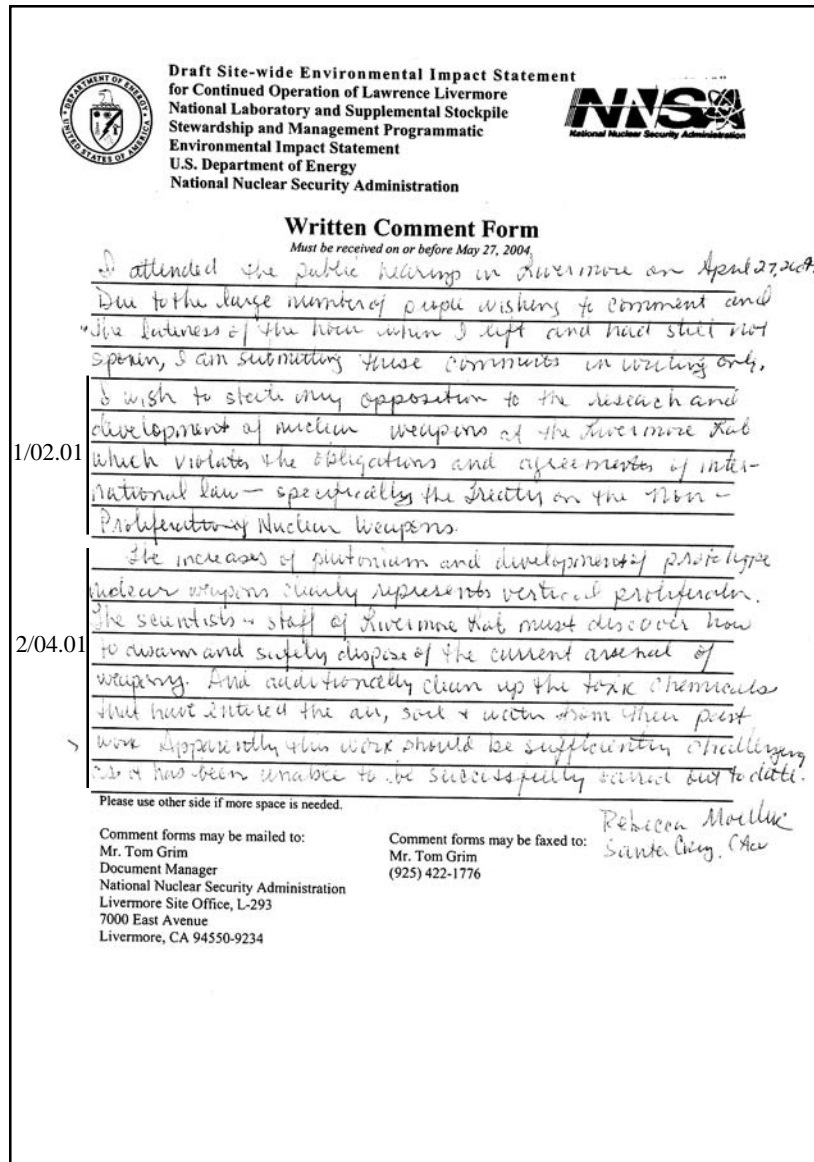 Draft Site-wide Environmental Impact Statement
for Continued Operation of Lawrence Livermore
National Laboratory and Supplemental Stockpile
Stewardship and Management Programmatic
Environmental Impact Statement
U.S. Department of Energy
National Nuclear Security Administration
DEPARTMENT OF ENERGY
UNITED STATES OF AMERICA
NNSA
National Nuclear Security Administration
Written Comment Form
Must be received on or before May 27, 2004.
I attended the public hearing in Livermore on April 27, 2004.
Due to the large number of people wishing to comment and
the lateness of the hour when I left and had still not
spoken, I am submitting these comments in writing only.
I wish to state my opposition to the research and
1/02.01
development of nuclear weapons at the Livermore Lab
which violates the obligations and agreements of inter-
national law — specifically the Treaty on the Non-
Proliferation of Nuclear Weapons.
The increases of plutonium and development of prototype
nuclear weapons clearly represents vertical proliferation.
2/04.01
The scientists + staff of Livermore Lab must discover how
to disarm and safely dispose of the current arsenal of
weaponry. And additionally clean up the toxic chemicals
that have entered the air, soil + water from their past
work. Apparently this work should be sufficiently challenging
as it has been unable to be successfully carried out to date.
Please use other side if more space is needed.
Rebecca
Santa Cruz, CA
Comment forms may be mailed to:
Mr. Tom Grim
Document Manager
National Nuclear Security Administration
Livermore Site Office, L-293
7000 East Avenue
Livermore, CA 94550-9234
Comment forms may be faxed to:
Mr. Tom Grim
(925) 422-1776